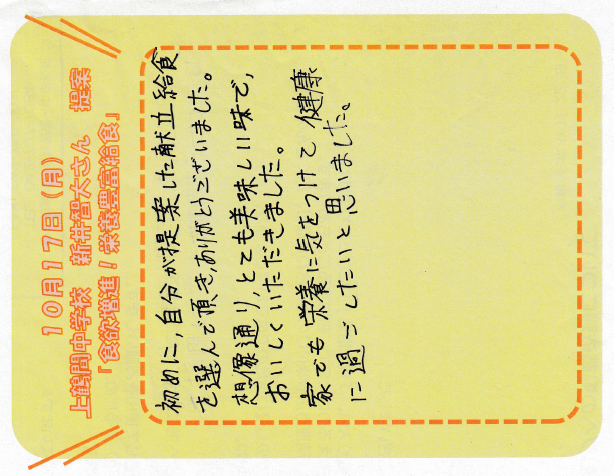 10月17日(月)
上鶴間中学校 新井智大さん 提案
「食欲増進!栄養豊富給食」
初めに,自分が提案した献立給食
を選んで頂き,ありがとうございました。
想像通り,とても美味しい味で,
おいしくいただきました。
家でも栄養に気をつけて 健康
に過ごしたいと思いました。